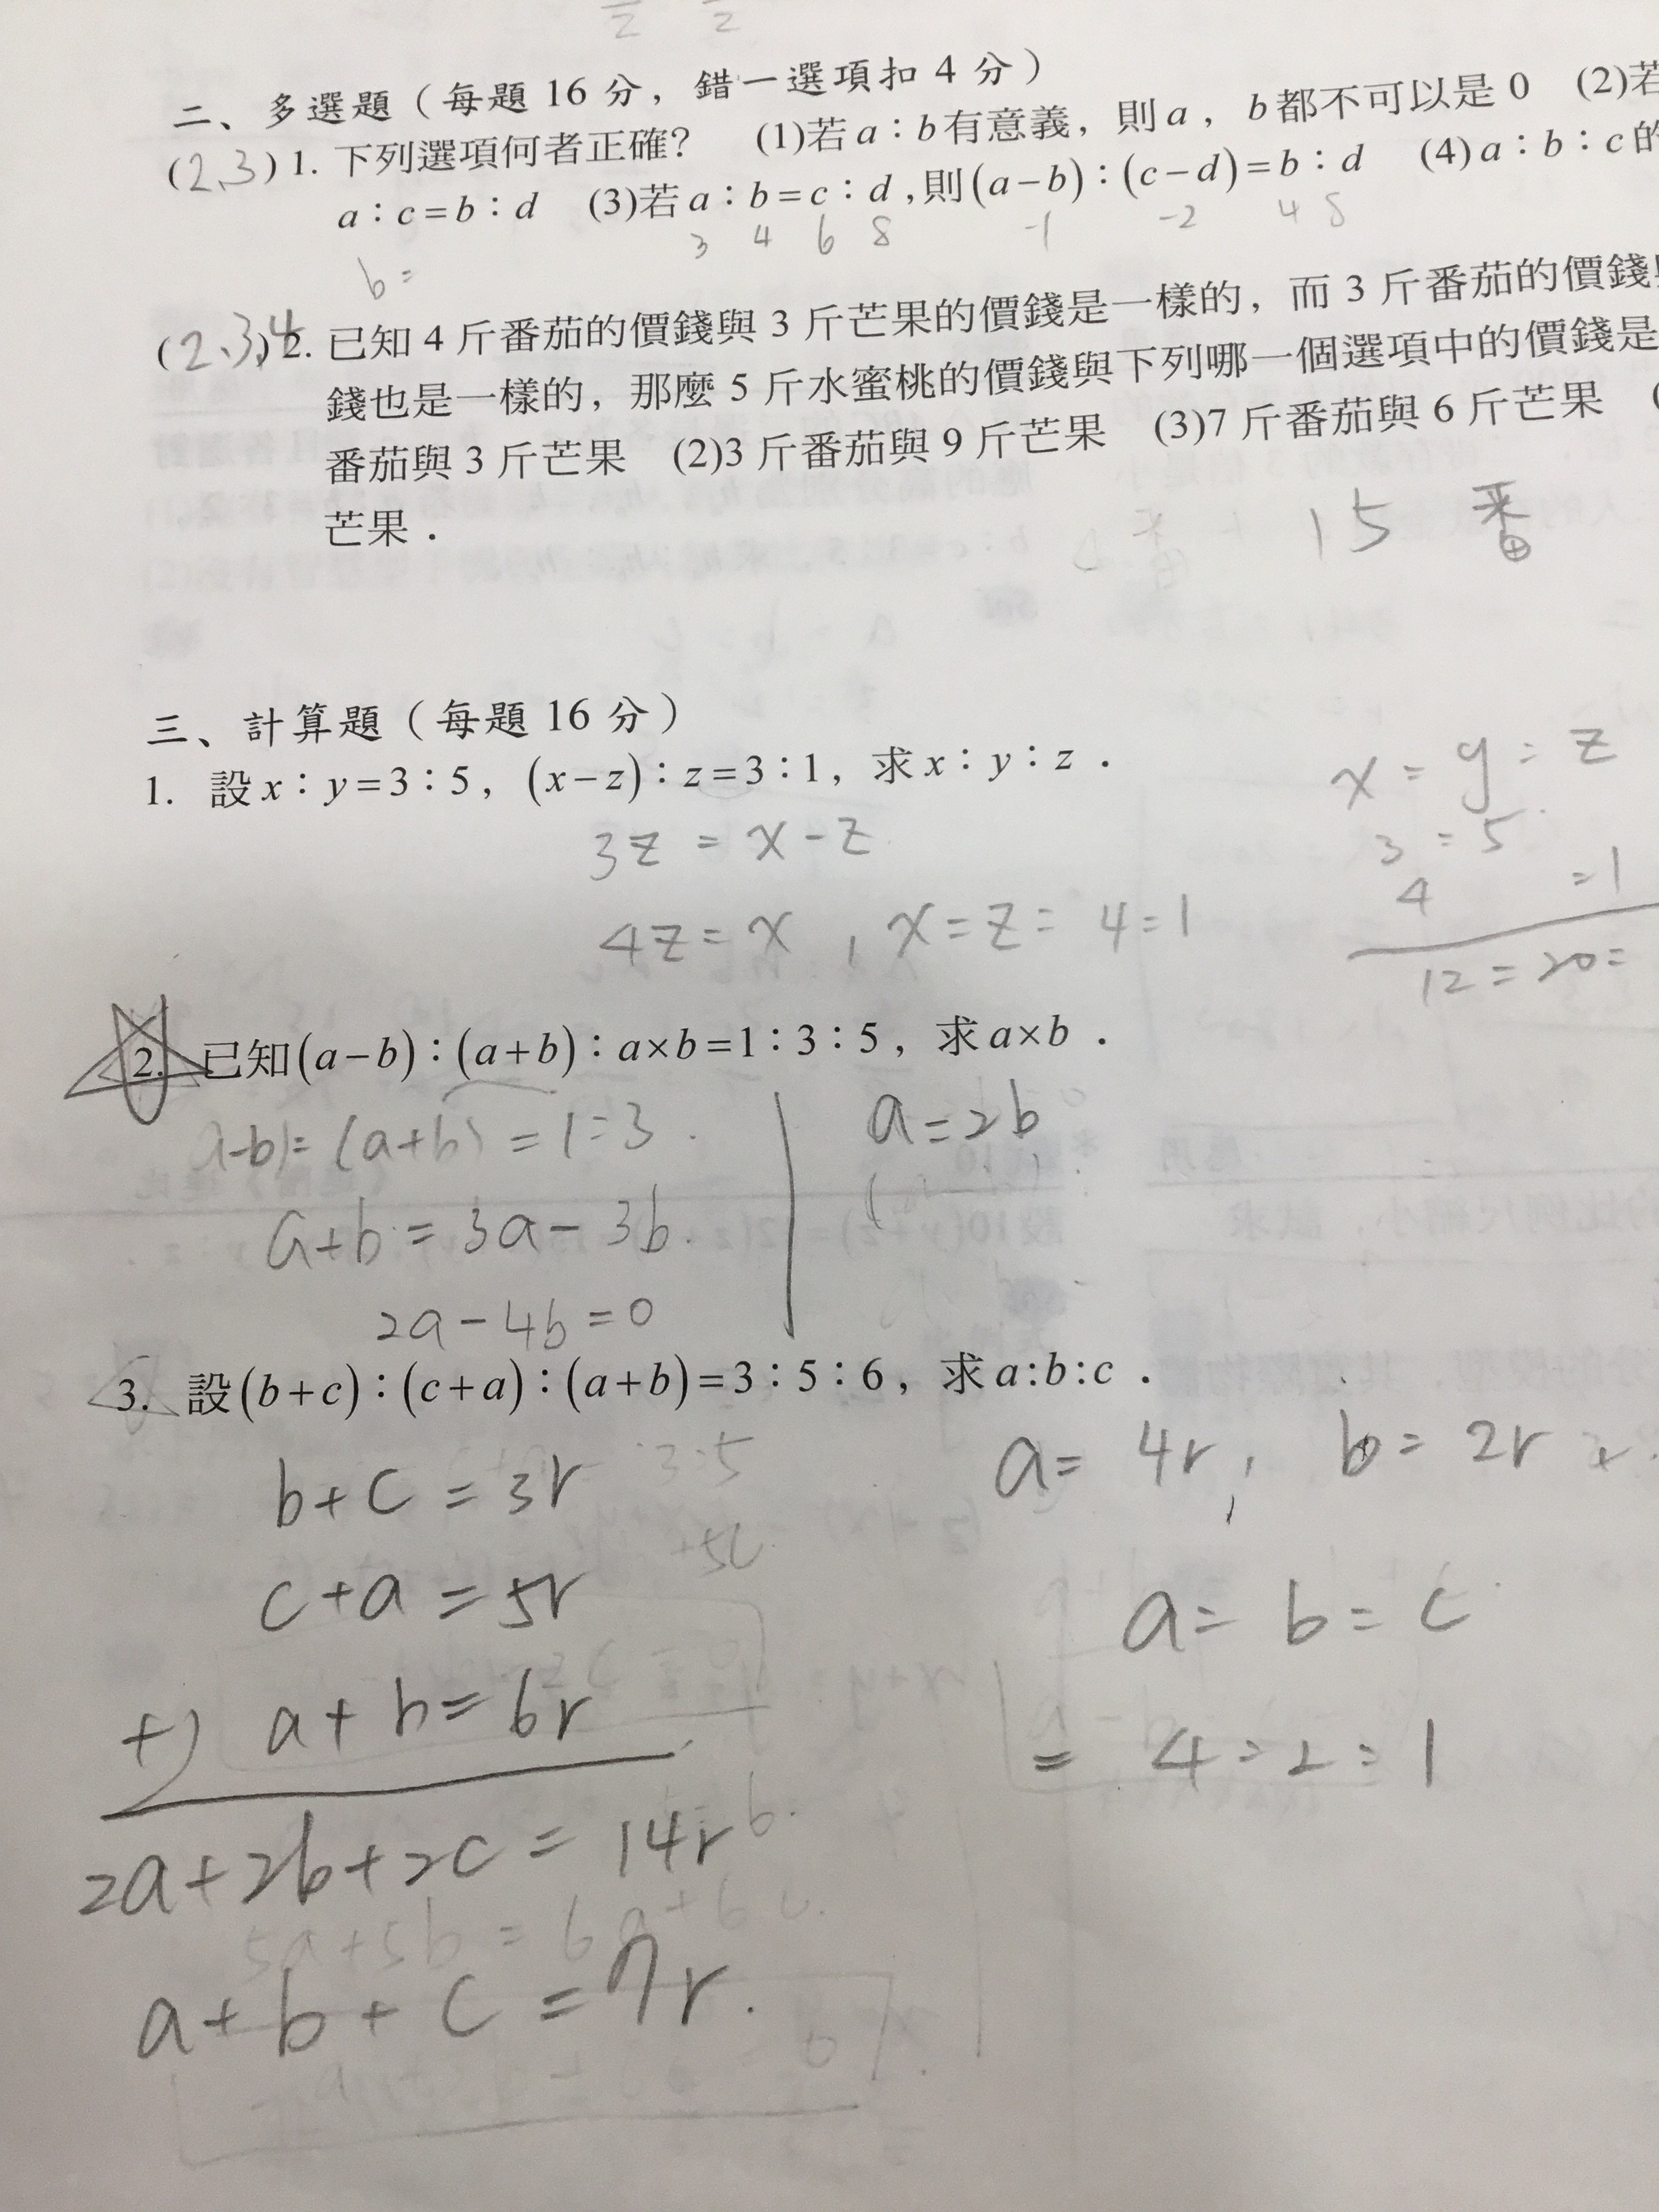 二、多選題（每題 16 分，錯一選項扣 4 分）
(2,3) 1. 下列選項何者正確？ (1)若 a：b 有意義，則 a，b 都不可以是 0 (2)若
a：c=b：d (3)若 a：b=c：d，則(a−b)：(c−d)=b：d (4) a：b：c 的
3 4 6 8 -1 -2 4 8
b =
(2、3,4) 2. 已知 4 斤番茄的價錢與 3 斤芒果的價錢是一樣的，而 3 斤番茄的價錢
錢也是一樣的，那麼 5 斤水蜜桃的價錢與下列哪一個選項中的價錢是
番茄與 3 斤芒果 (2)3 斤番茄與 9 斤芒果 (3)7 斤番茄與 6 斤芒果
芒果．
15 番
三、計算題（每題 16 分）
1. 設 x：y=3：5，(x−z)：z=3：1，求 x：y：z．
3z = x-z
4z = x , x = z = 4 = 1
x = y = z
3 = 5
4 = 1
12 = 20 =
2. 已知(a−b)：(a+b)：a×b=1：3：5，求 a×b．
-b)= (a+b) = 1=3.
a+b = 3a-3b.
2a-4b=0
a=2b
3. 設(b+c)：(c+a)：(a+b)=3：5：6，求 a:b:c．
b+c = 3r
c+a = 5r
+) a+b = 6r
2a+2b+2c = 14r
a+b+c = 7r.
a= 4r, b= 2r
a= b= c
= 4=2=1
3:5
+5c
5a+5b = 6a+6c.